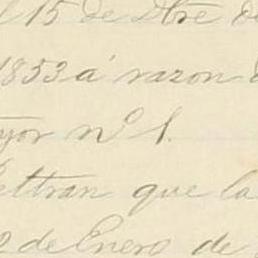 15 de Dbre de
1853 á razon d
yor nº 1.
eltran que la
2 de Enero de